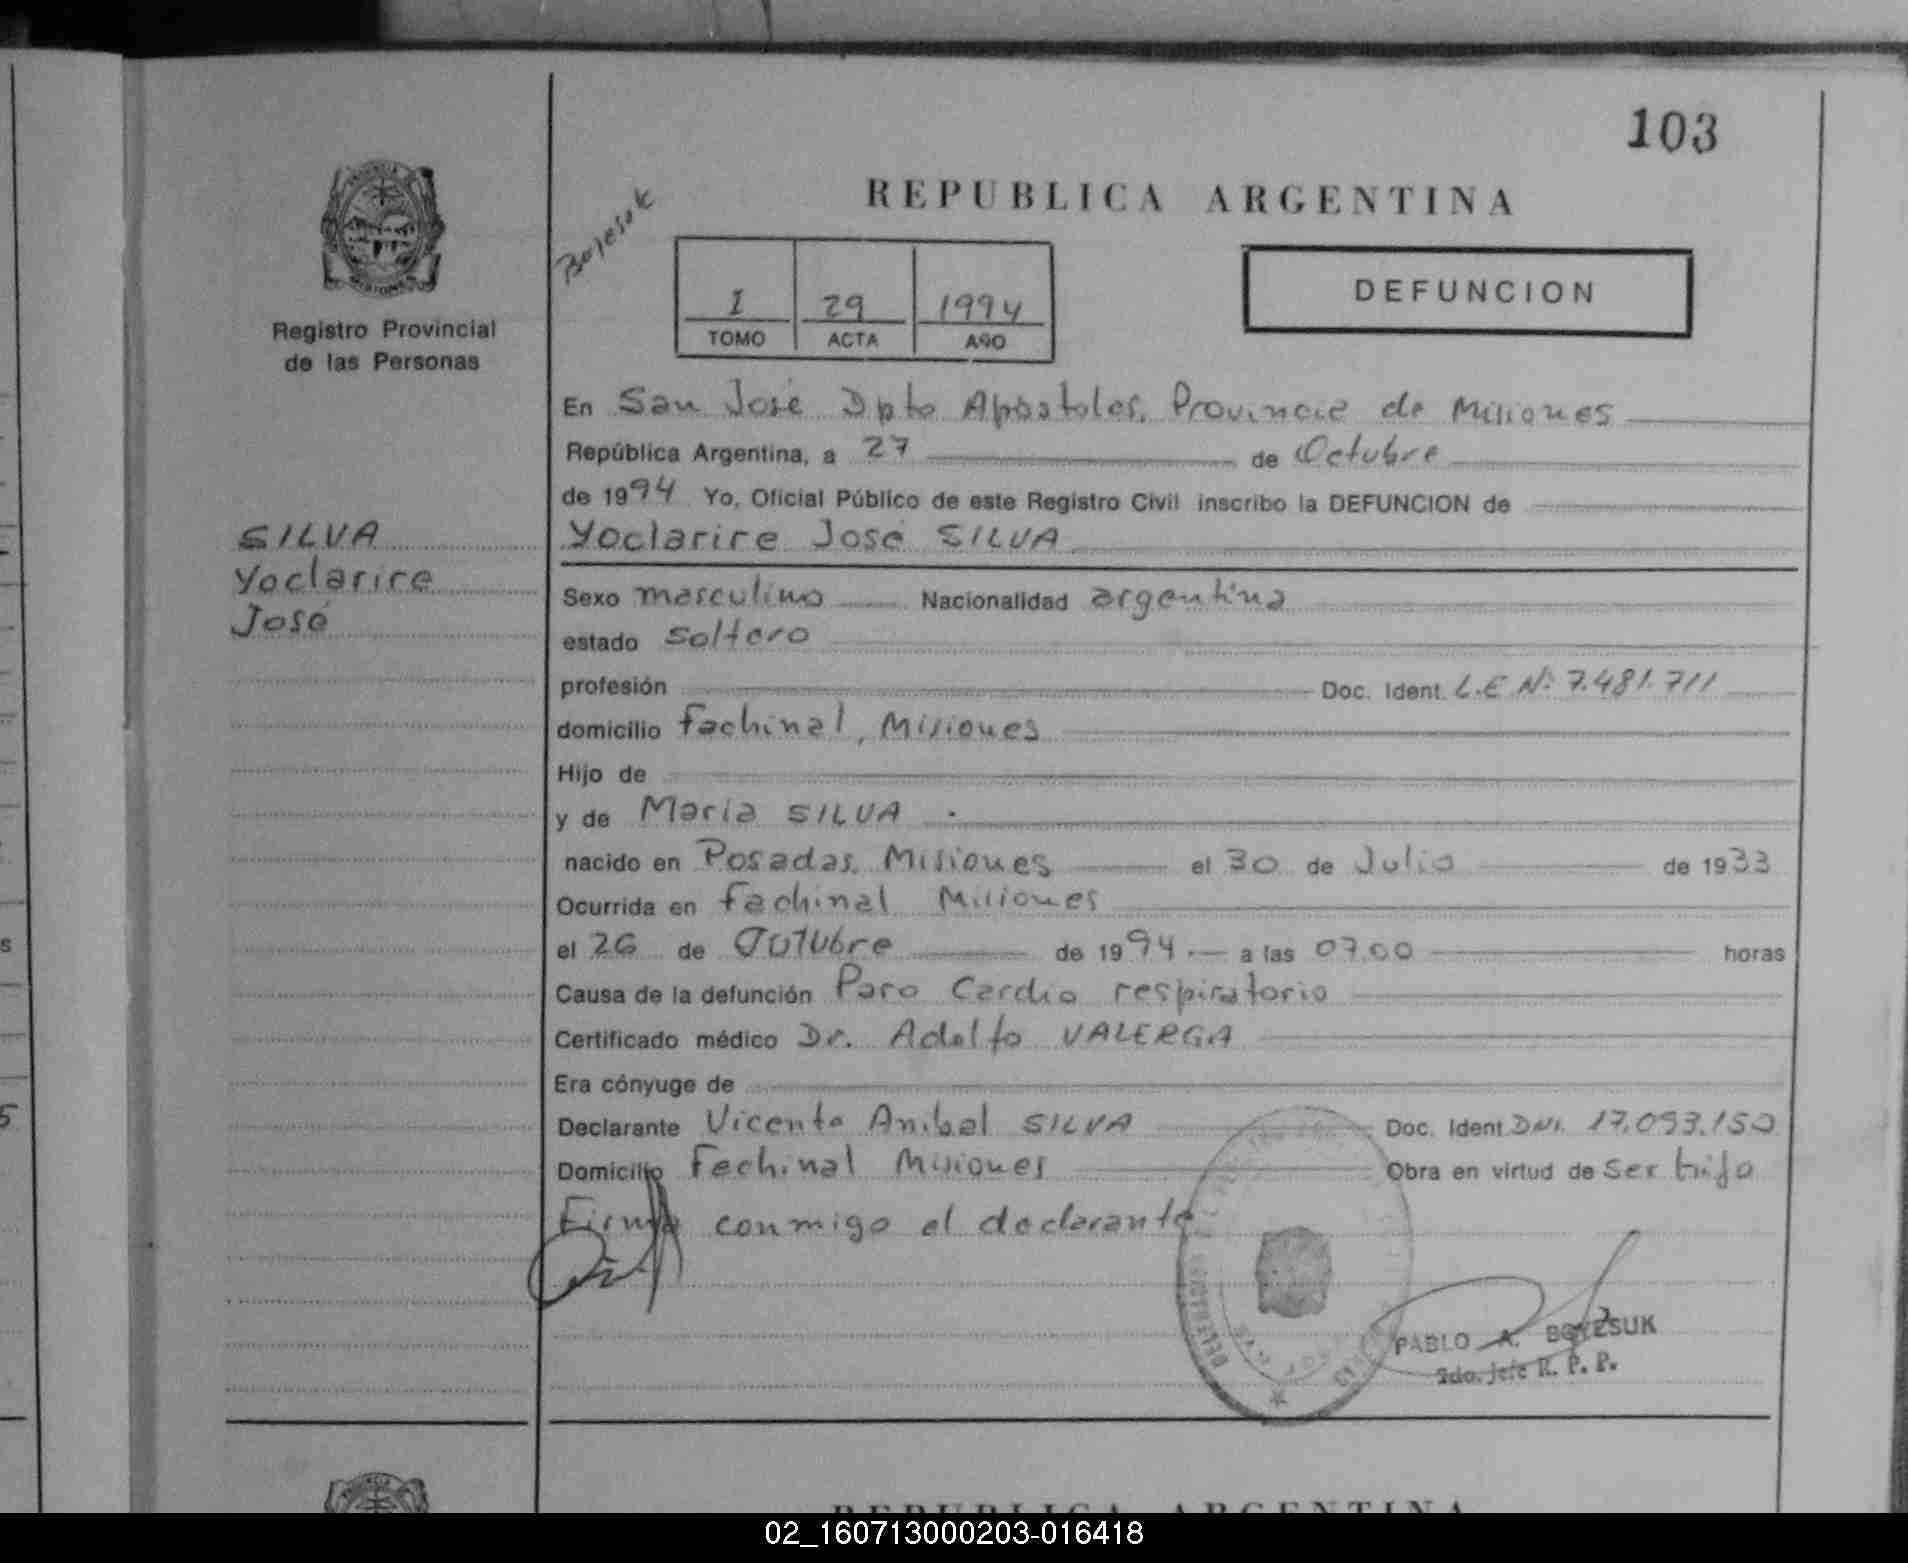 103
REPUBLICA ARGENTINA
I 29 1994
TOMO ACTA AÑO
DEFUNCION
Registro Provincial
de las Personas
SILVA
Yoclarire
José
En San José Dpto Apóstoles. Provincia de Misiones
República Argentina, a 27 de Octubre
de 1994 Yo, Oficial Público de este Registro Civil inscribo la DEFUNCION de
Yoclarire José SILVA
Sexo masculino Nacionalidad argentina
estado soltero
profesión Doc. Ident. L.E Nº 7.481.711
domicilio Fachinal, Misiones
Hijo de
y de Maria SILVA.
nacido en Posadas, Misiones el 30 de Julio de 1933
Ocurrida en Fachinal Misiones
el 26 de Octubre de 1994.- a las 07.00 horas
Causa de la defunción Paro Cardio respiratorio
Certificado médico Dr. Adolfo VALERGA
Era cónyuge de
Declarante Vicente Anibal SILVA Doc. Ident DNI. 17.093.150
Domicilio Fachinal Misiones Obra en virtud de ser hijo
Firma conmigo el declarante
PABLO A. BOYESUK
2do. Jefe R. P. P.
REPUBLICA ARGENTINA
02_160713000203-016418